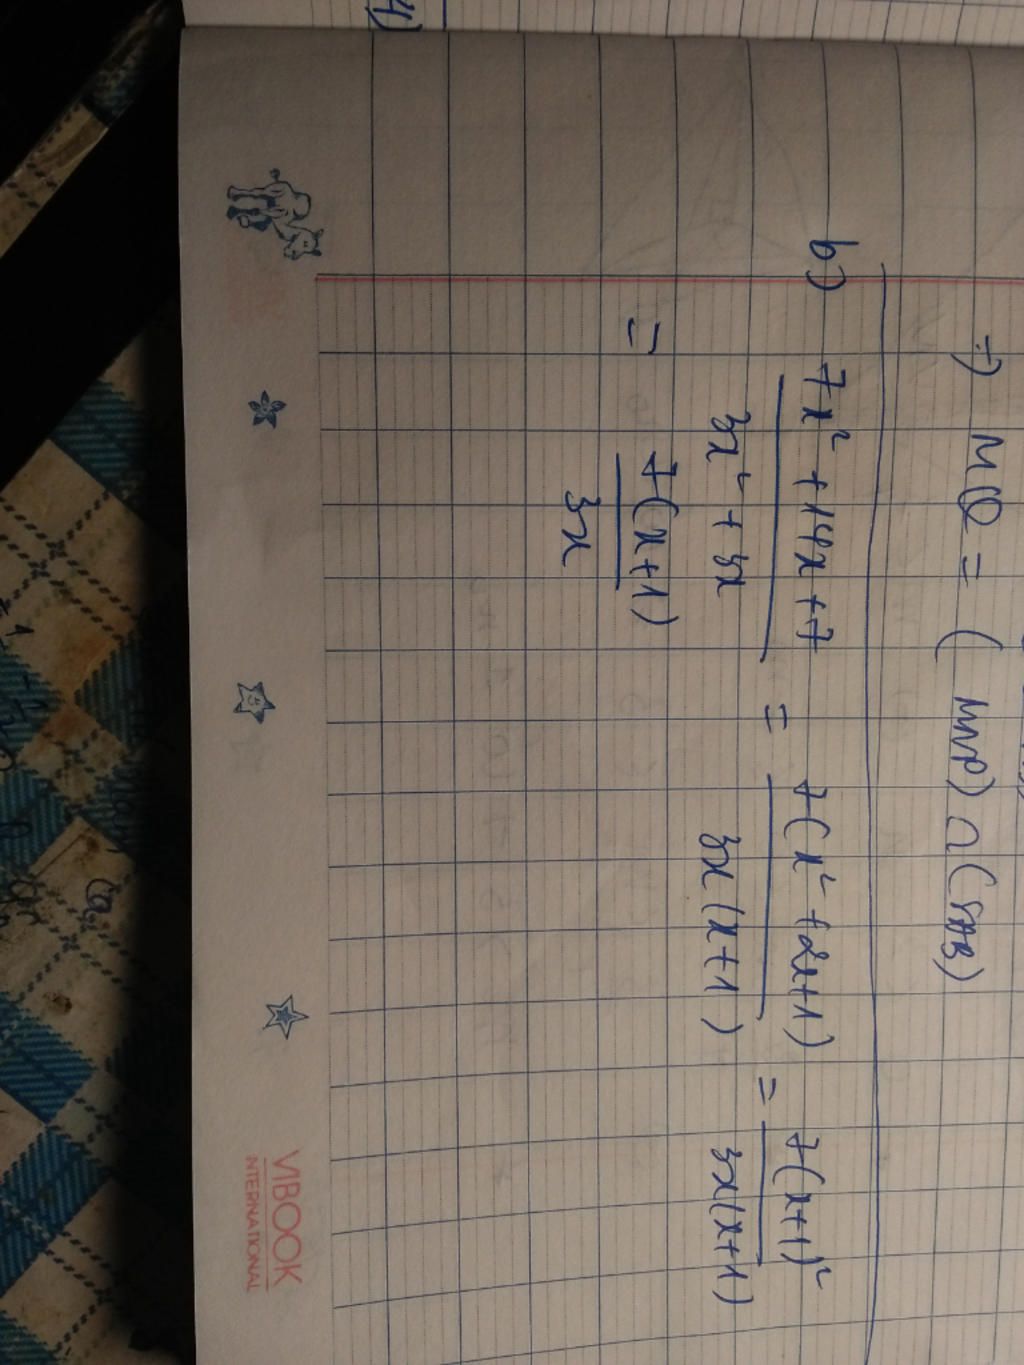 =) MQ = (MNP) ∩ (SAB)
b) 7x² + 14x + 7 / 3x² + 3x = 7(x² + 2x + 1) / 3x(x + 1) = 7(x + 1)² / 3x(x + 1)
= 7(x + 1) / 3x
VIBOOK
INTERNATIONAL